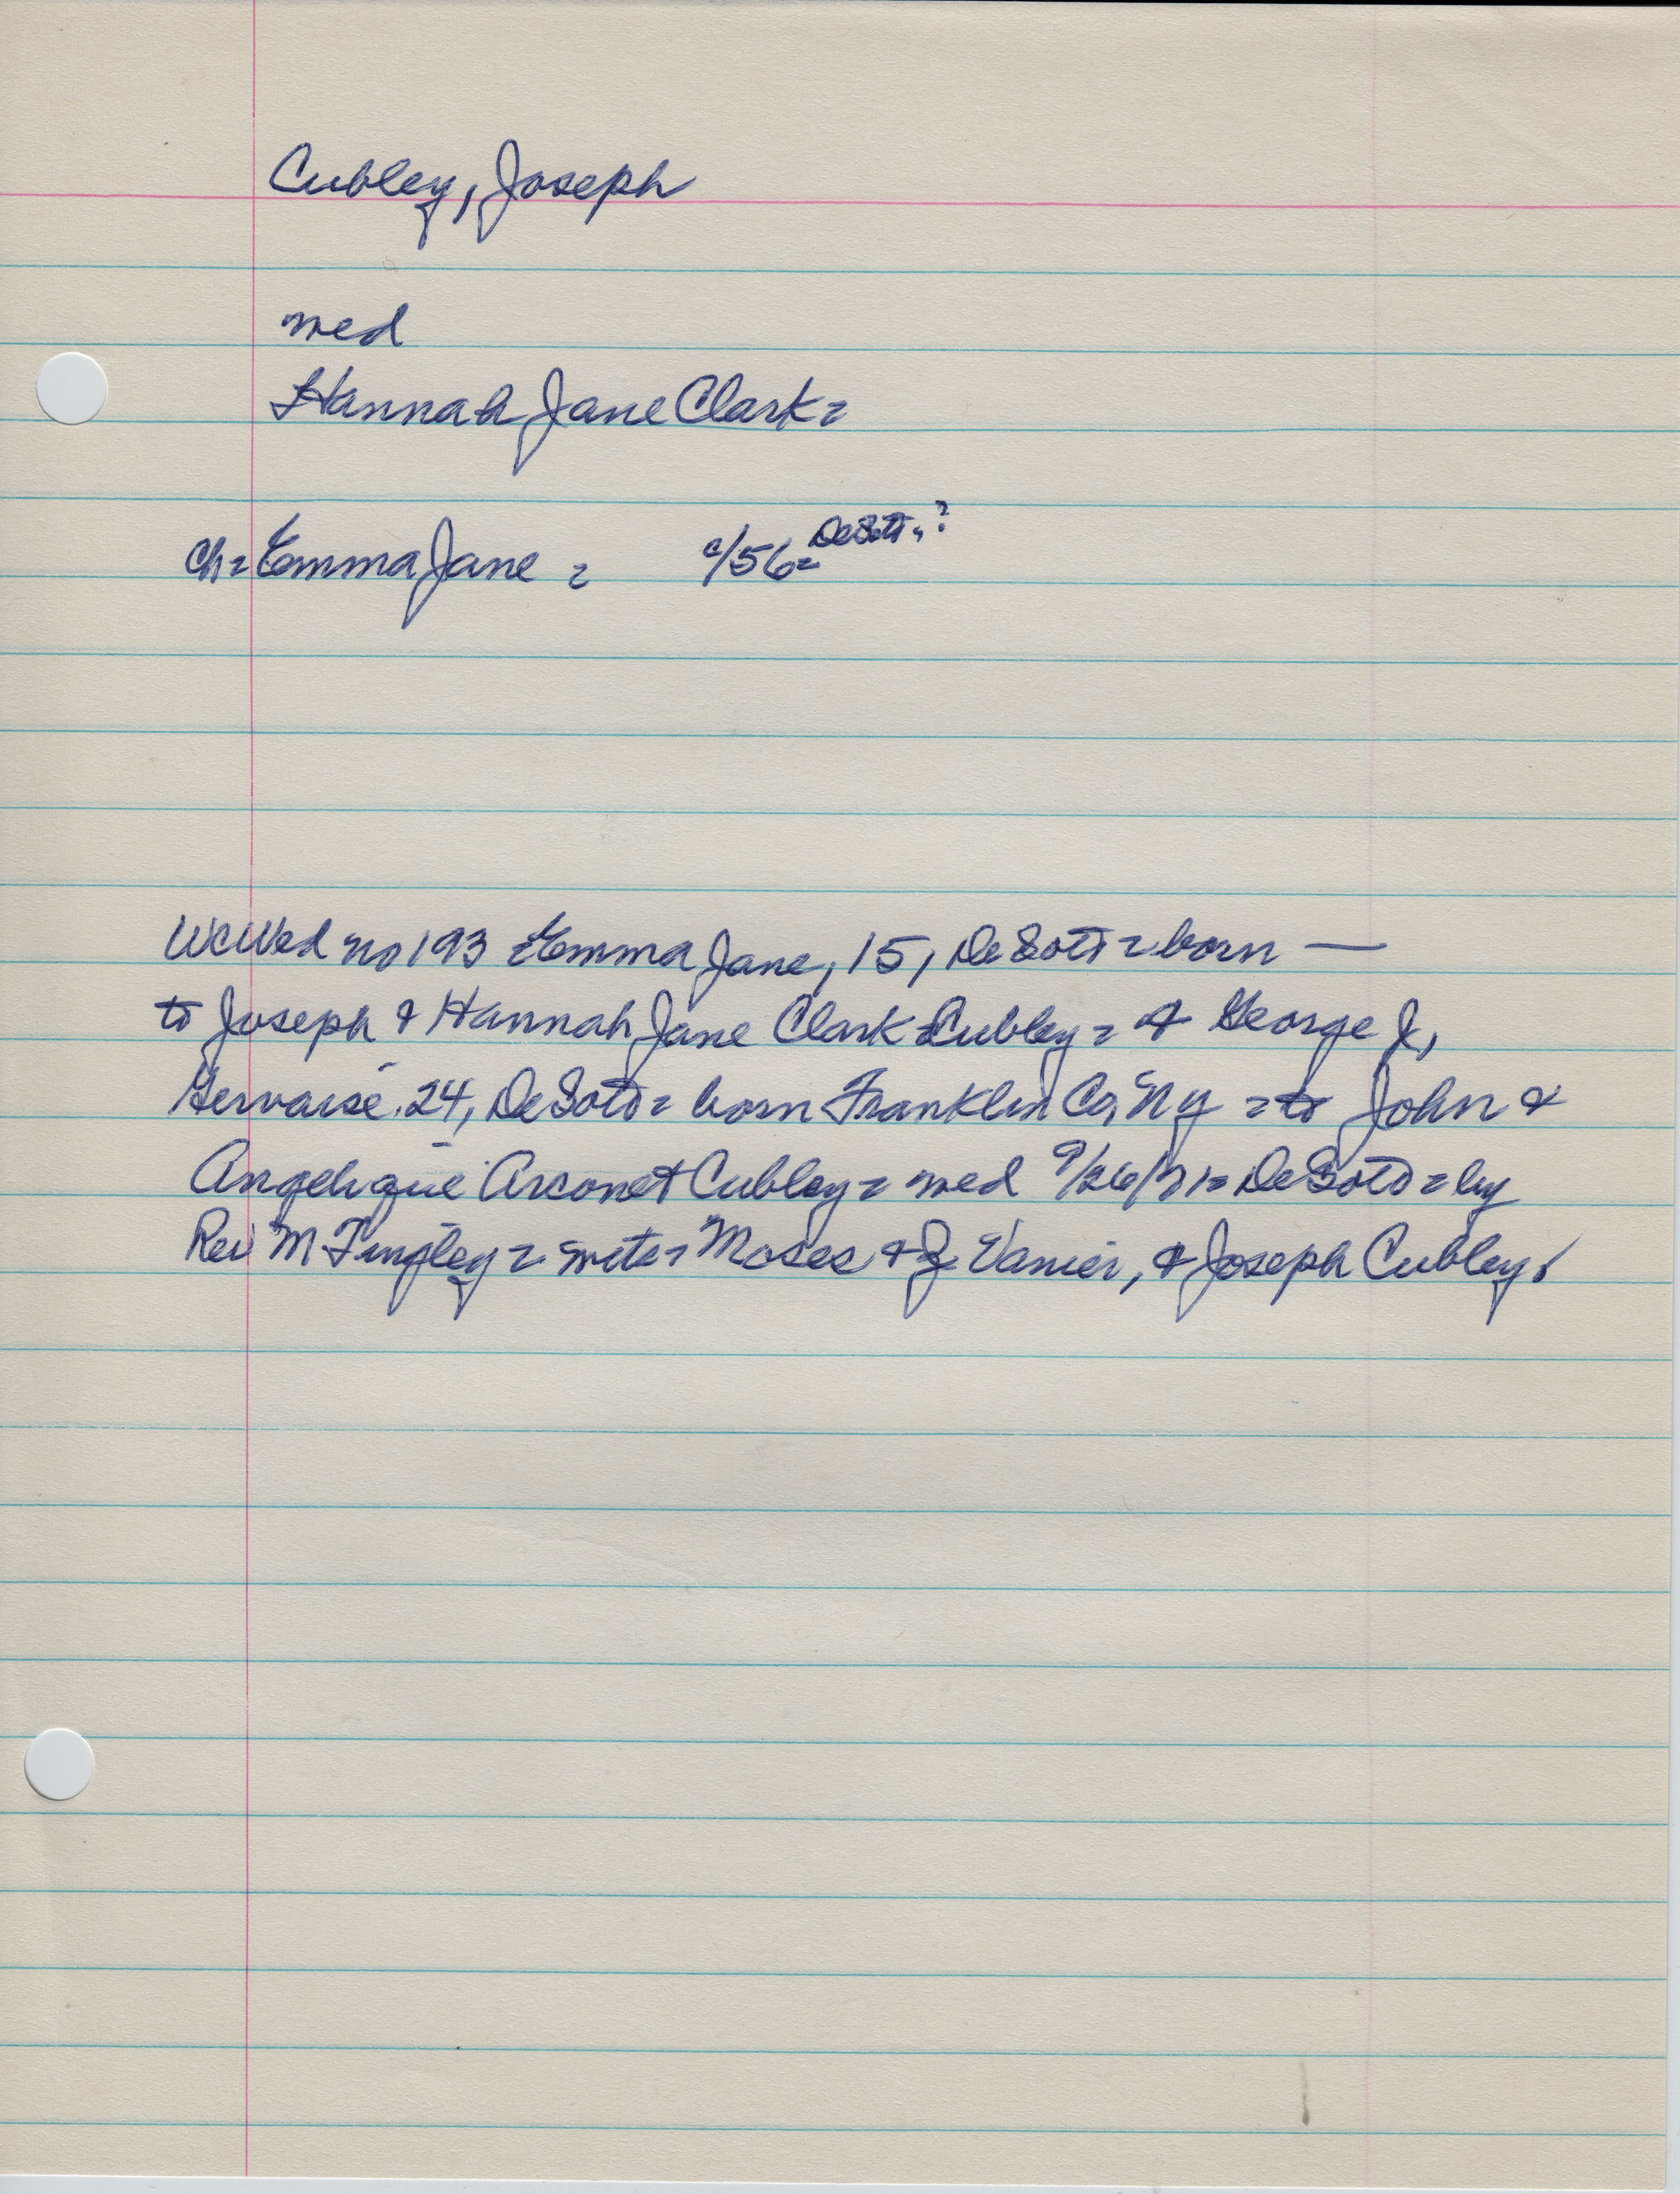 Cubley, Joseph
wed
Hannah Jane Clark =
DeSoto = ?
ch = Emma Jane = c/56 =
WCWed no 193 = Emma Jane, 15, DeSoto = born —
to Joseph & Hannah Jane Clark Cubley = & George J,
Gervaise. 24, DeSoto = born Franklin Co, NY = to John &
Angelique Arconet Cubley = wed 9/26/71 = DeSoto = by
Rev M Tingley = wits = Moses & J Vanier, & Joseph Cubley.